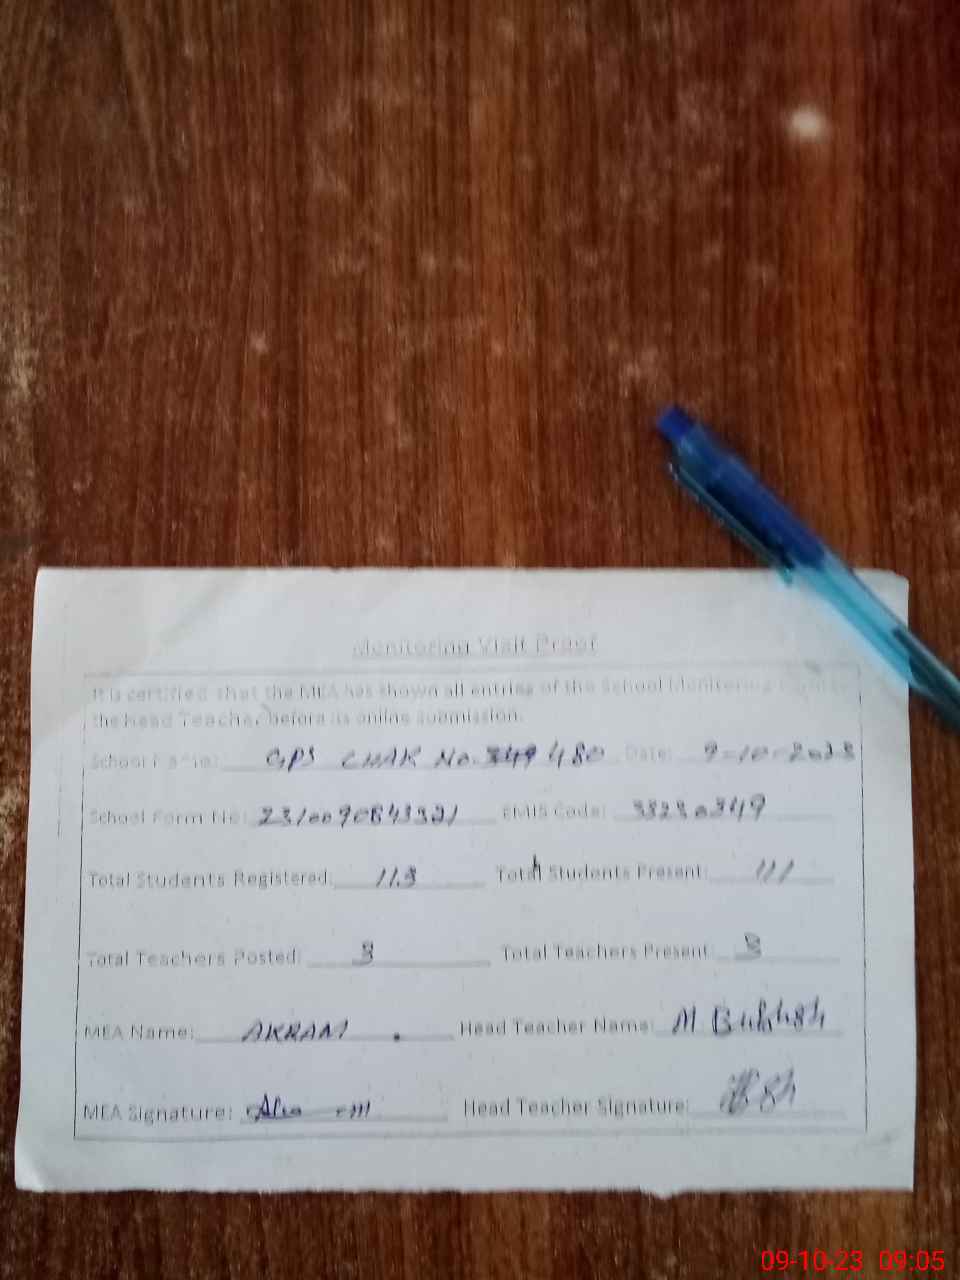 Monitoring Visit Proof
It is certified that the MEA has shown all entries of the School Monitoring
the Head Teacher before its online submission.
School Name: GPS CHAK No. 480 Date: 9-10-2023
School Form No: EMIS Code: 33230349
Total Students Registered: 113 Total Students Present: 111
Total Teachers Posted: 3 Total Teachers Present: 3
MEA Name: AKRAM . Head Teacher Name: M
MEA Signature: Head Teacher Signature:
09-10-23 09:05